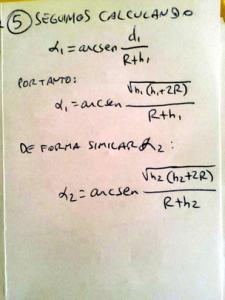 5 SEGUIMOS CALCULANDO
α₁ = arcsen d₁ / R+h₁
POR TANTO:
α₁ = arcsen √h₁(h₁+2R) / R+h₁
DE FORMA SIMILAR α₂:
α₂ = arcsen √h₂(h₂+2R) / R+h₂